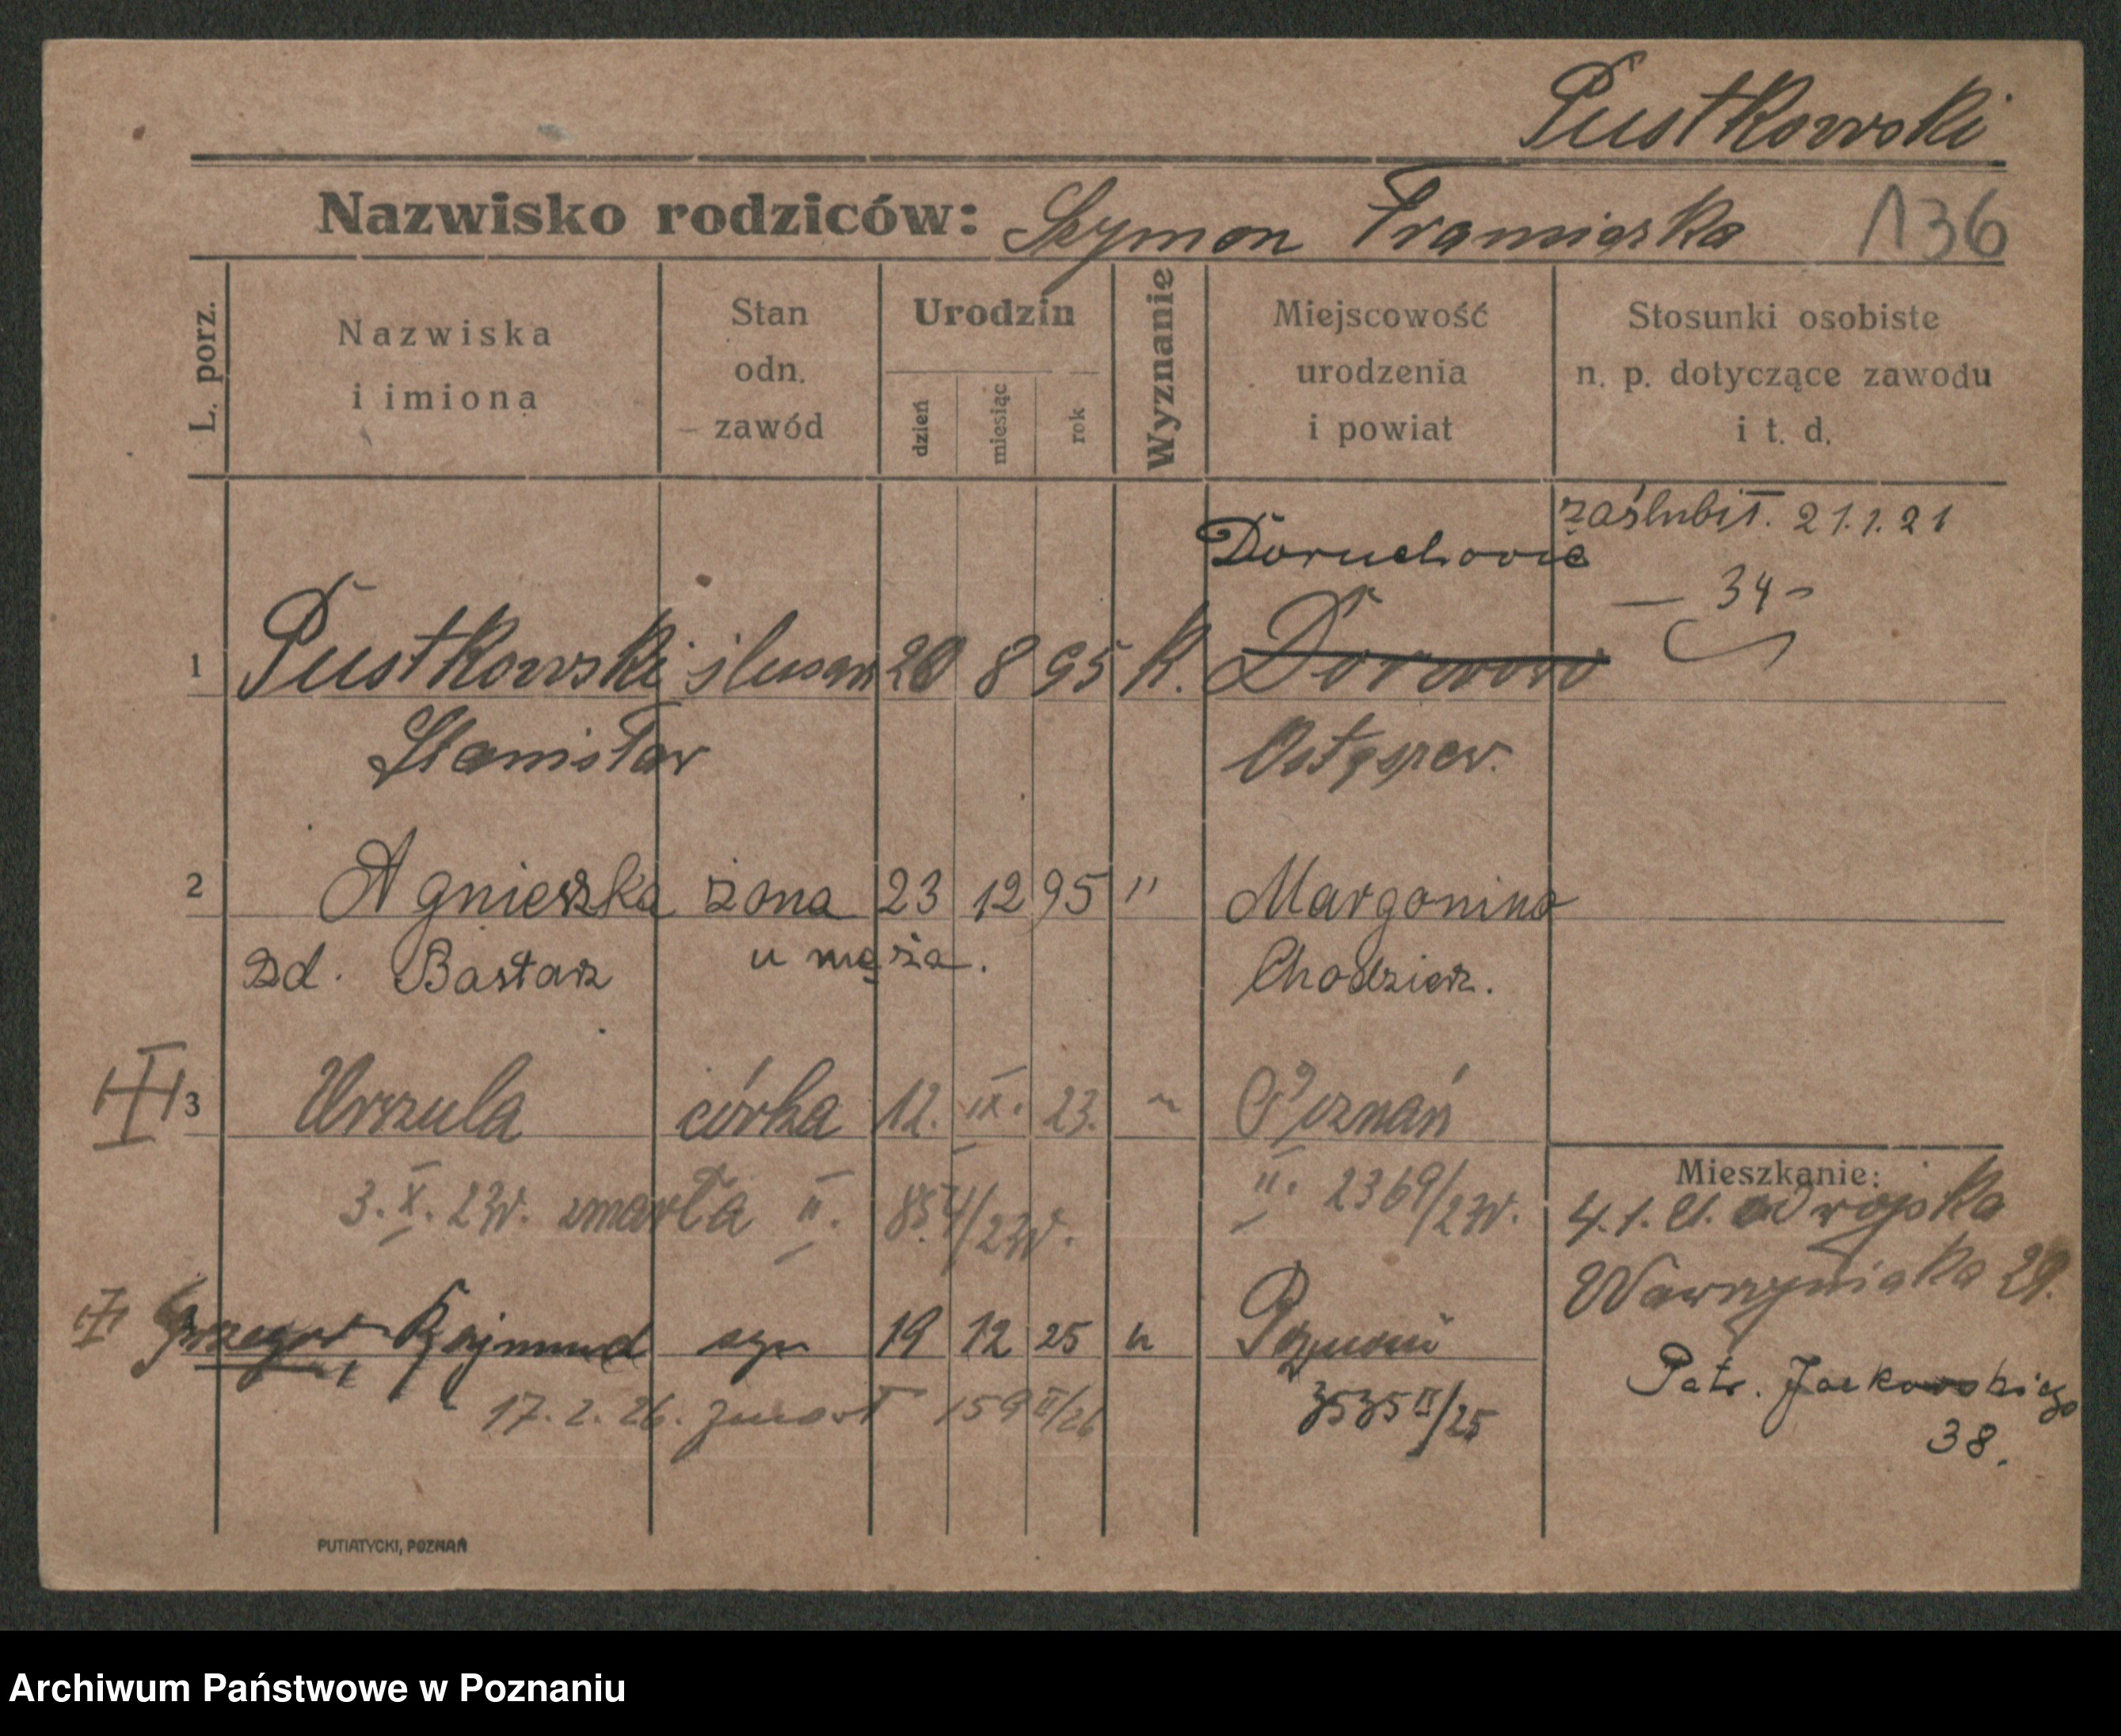 Pustkowski
Nazwisko rodziców: Szymon Franciszka 136
L. porz.
Nazwiska
i imiona
Stan
odn.
zawód
Urodzin
dzień
miesiąc
rok
Wyznanie
Miejscowość
urodzenia
i powiat
Stosunki osobiste
n. p. dotyczące zawodu
i t. d.
zaślubił. 21.1.21
Doruchowie
— 34 -
1 Pustkowski ślusarz 20 8 95 K.
Stanisław Ostrzeszew.
2 Agnieszka żona 23 12 95 " Margonino
zd. Bastarz u męża. Chodzież.
3 Urszula córka 12. IX. 23. " Poznań
3. X. 23r. zmarła II. 854/23r. II. 2369/23r.
Mieszkanie:
4.1.21.
Wawrzyniaka 29.
Grzegorz, Rajmund syn 19 12 25 " Poznań
17. 2. 26. zmarł 159 II/26 3535 II/25
Patr. Jackowskiego
38.
PUTIATYCKI, POZNAŃ
Archiwum Państwowe w Poznaniu